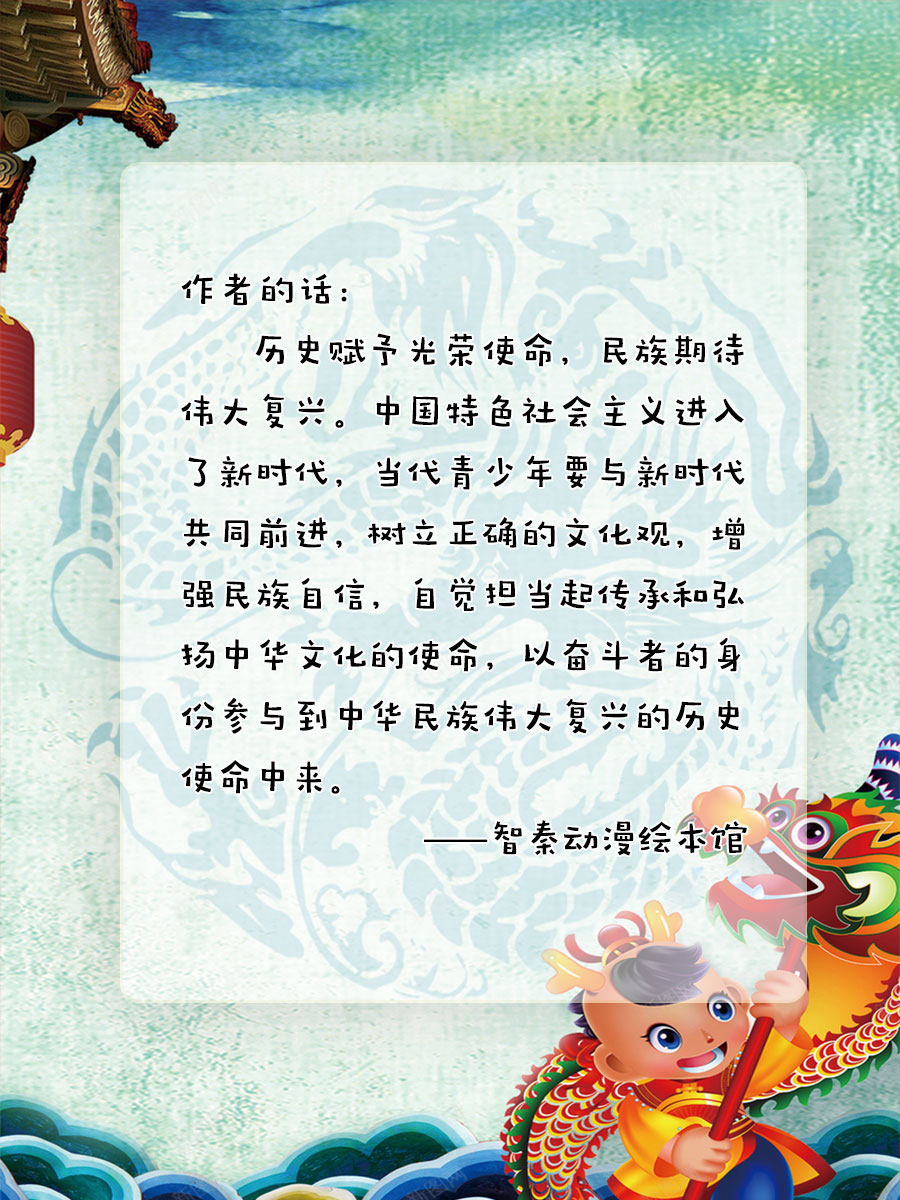 作者的话：
历史赋予光荣使命，民族期待
伟大复兴。中国特色社会主义进入
了新时代，当代青少年要与新时代
共同前进，树立正确的文化观，增
强民族自信，自觉担当起传承和弘
扬中华文化的使命，以奋斗者的身
份参与到中华民族伟大复兴的历史
使命中来。
——智秦动漫绘本馆